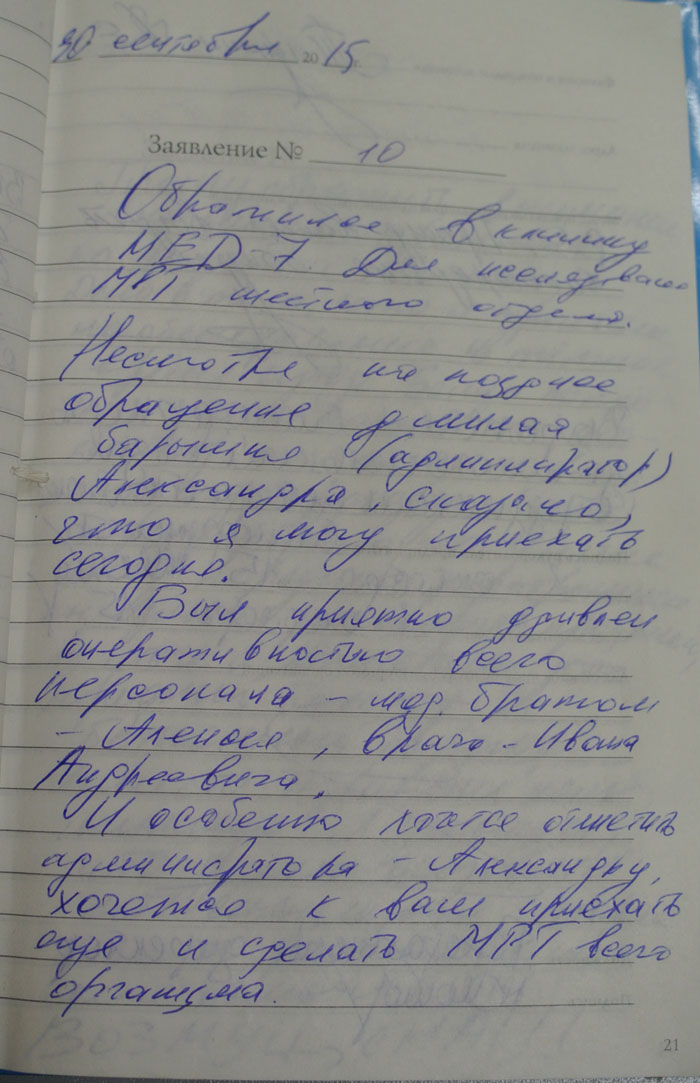 30 сентября 2015 г.
Заявление № 10
Обратился в клинику
MED-7. Для исследования
МРТ шейного отдела.
Несмотря на позднее
обращение милая
барышня (администратор)
Александра, сказала,
что я могу приехать
сегодня.
Был приятно удивлен
оперативностью всего
персонала – мед. братом
– Алексея, врача – Ивана
Андреевича.
И особенно хочется отметить
администратора – Александру,
хочется к вам приехать
еще и сделать МРТ всего
организма.
21